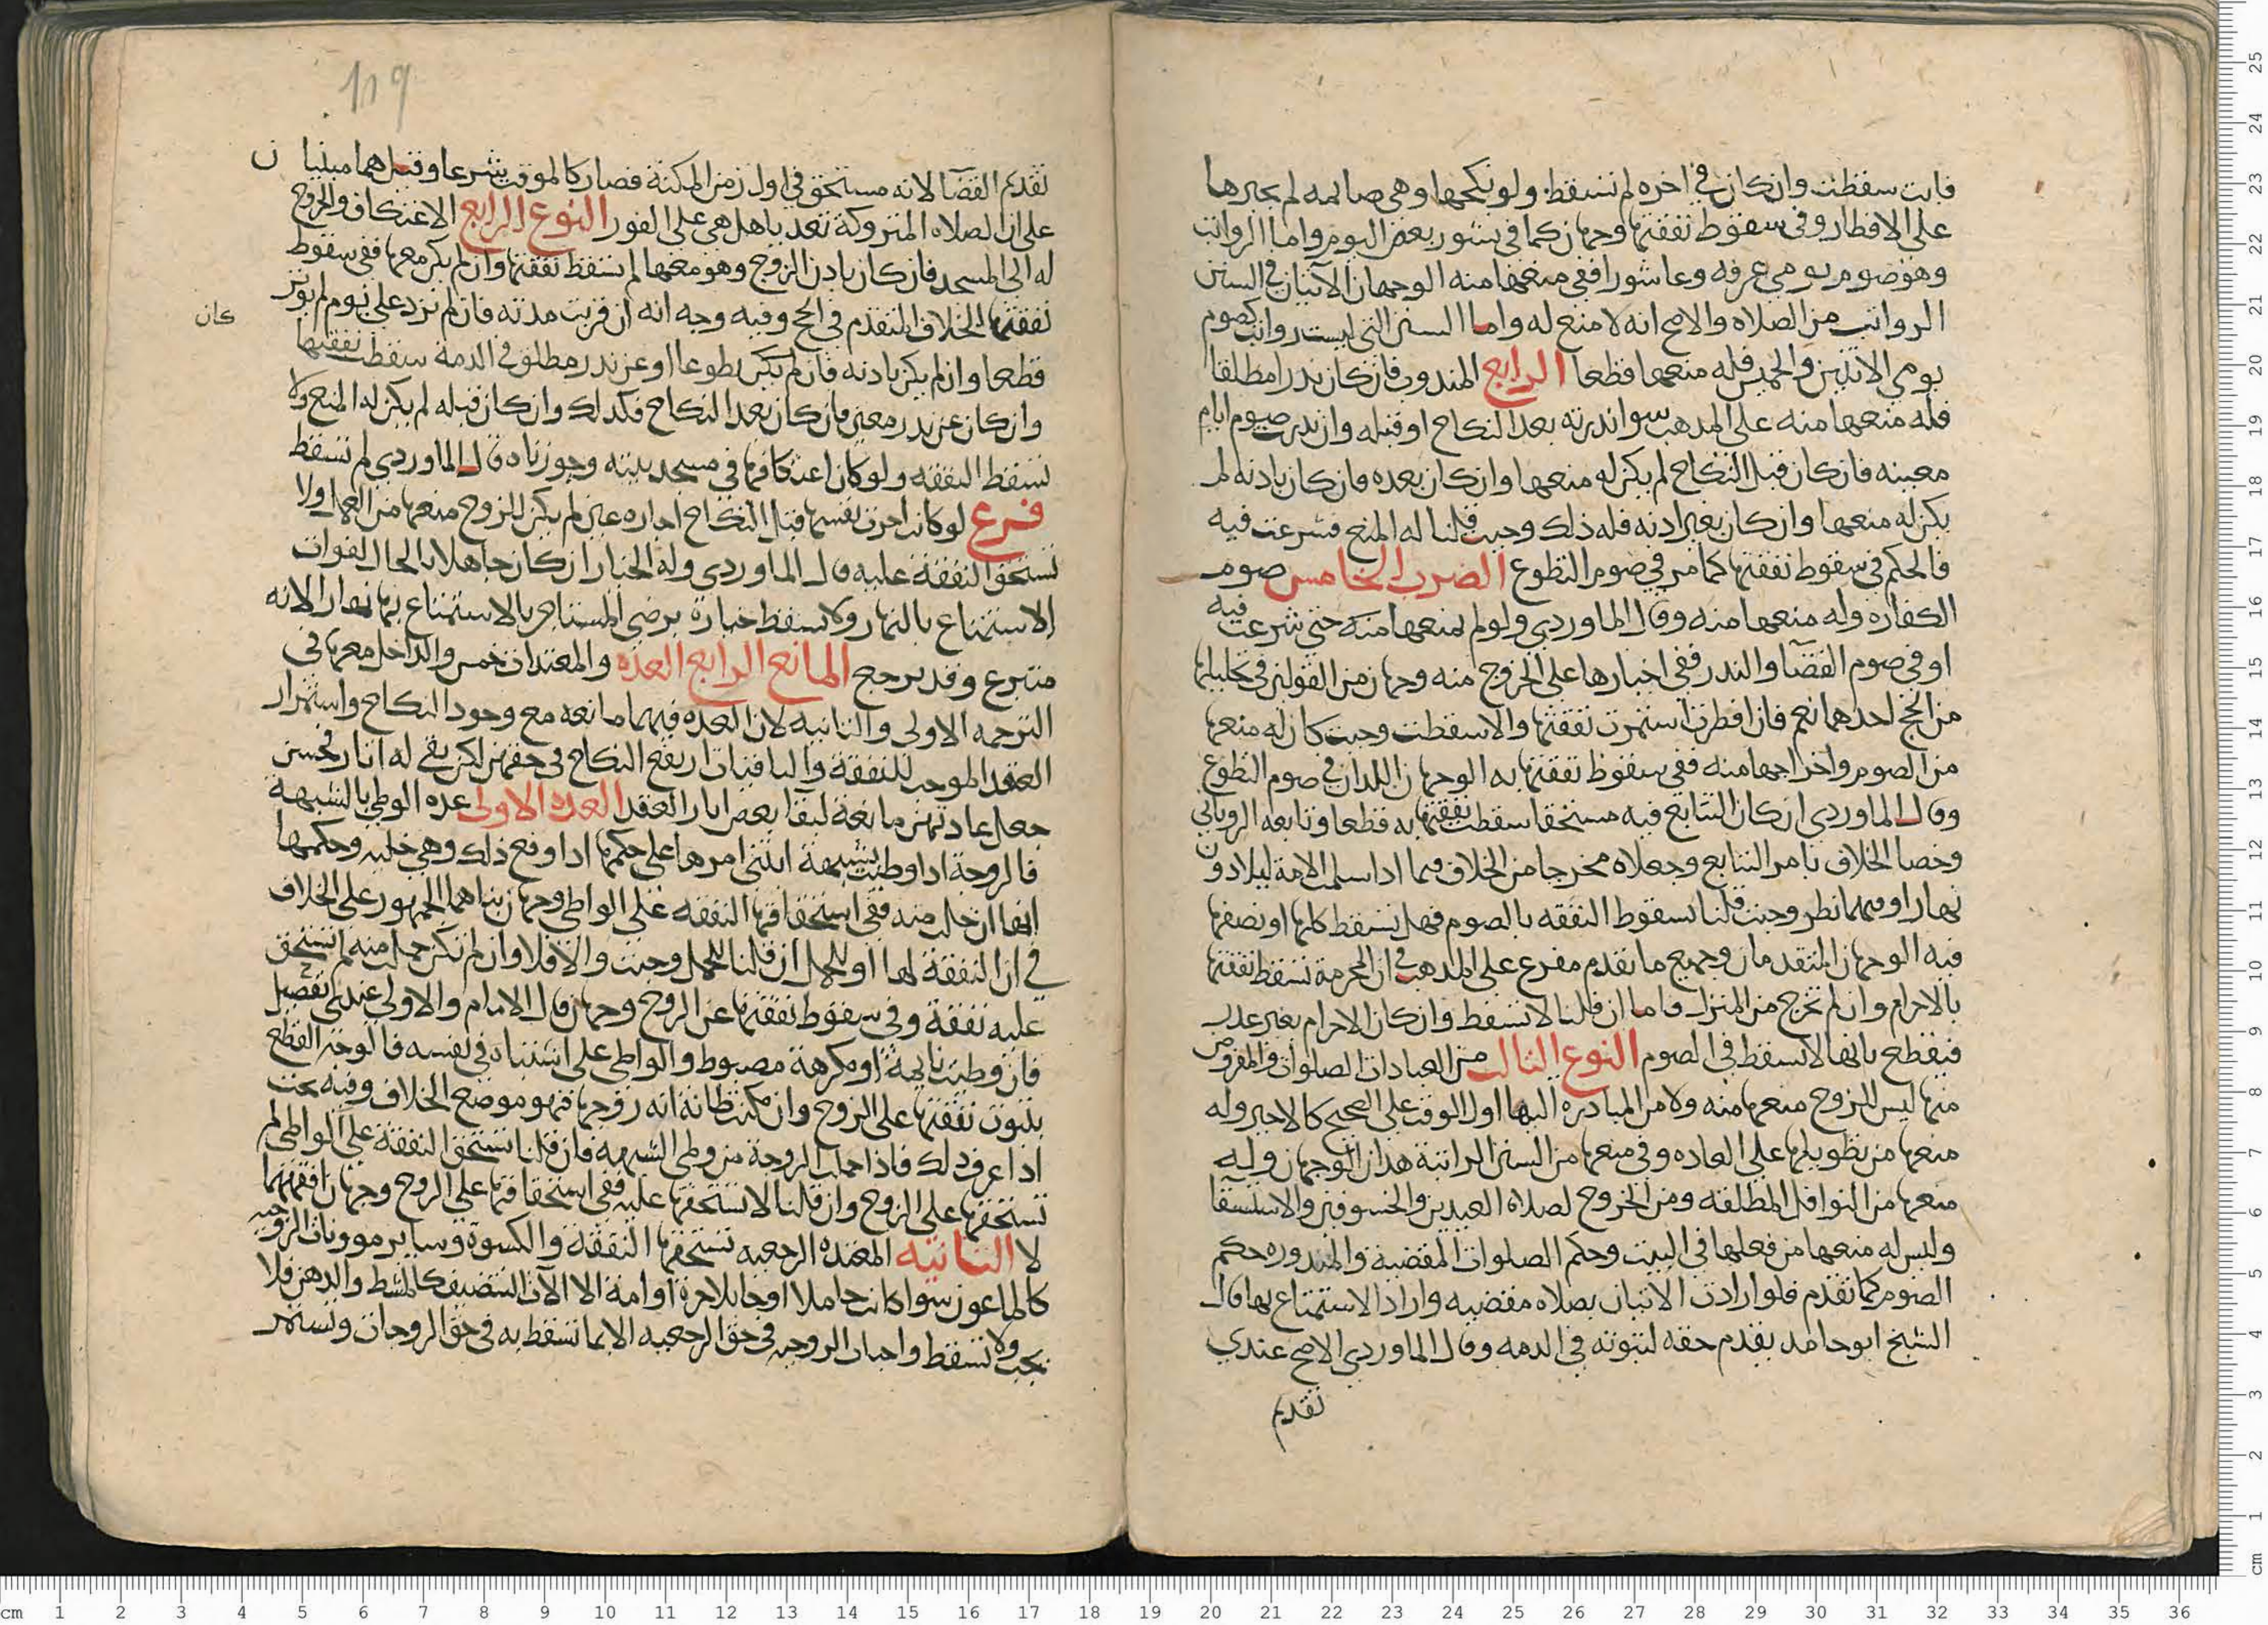 فابت سقطت وان كان في اخره لم تسقط ولو نكحها وهي صايمه لم يجبرها
على الافطار وفي سقوط نفقتها وجهان كما في نشوز بعض اليوم واما الرواتب
وهو صوم يومي عرفه وعاشورا ففي منعها منه الوجهان الاتيان في السنن
الرواتب من الصلاه والاصح انه لا منع له واما السنن التي ليست رواتب كصوم
يومي الاثنين والخميس فله منعها قطعا الرابع المندوب فان كان نذرا مطلقا
فله منعها منه على المذهب سوا نذرته بعد النكاح او قبله وان نذرت صوم ايام
معينه فان كان قبل النكاح لم يكن له منعها وان كان بعده فان كان باذنه لم
يكن له منعها وان كان بغير اذنه فله ذلك وحيث قلنا له المنع فشرعت فيه
فالحكم في سقوط نفقتها كما مر في صوم التطوع الضرب الخامس صوم
الكفاره وله منعها منه وقال الماوردي ولو لم يمنعها منه حتى شرعت فيه
او في صوم القضآ والنذر ففي اجبارها على الخروج منه وجهان من القولين في تحليلها
من الحج احدهما نعم فان افطرت استمرت نفقتها والا سقطت وحيث كان له منعها
من الصوم واخراجها منه ففي سقوط نفقتها به الوجهان اللذان في صوم التطوع
وقال الماوردي ان كان التتابع فيه مستحقا سقطت نفقتها به قطعا وتابعه الروياني
وخصا الخلاف بامر التتابع وجعلاه مخرجا من الخلاف فيما اذا سلمت الامة ليلا دون
نهار او فيهما نظر وحيث قلنا تسقوط النفقه بالصوم فهل تسقط كلها او نصفها
فيه الوجهان المتقدمان وجميع ما تقدم مفرع على المذهب في ان المحرمة تسقط نفقتها
بالاحرام وان لم تخرج من المنزل فاما ان قلنا لا تسقط وان كان الاحرام بغير عذر
فيقطع بانها لا تسقط في الصوم النوع الثالث من العبادات الصلوات والمفروض
منها ليس للزوج منعها منه ولا من المبادره اليها اول الوقت على الصحيح كالاجير وله
منعها من تطويلها على العاده وفي منعها من السنن الراتبة هذان الوجهان وله
منعها من النوافل المطلقه ومن الخروج لصلاة العيدين والخسوفين والاستسقا
وليس له منعها من فعلها في البيت وحكم الصلوات المقضية والمنذوره حكم
الصوم كما تقدم فلو ارادت الاتيان بصلاه مقضيه واراد الاستمتاع بها قال
الشيخ ابو حامد يقدم حقه لثبوته في الذمه وقال الماوردي الاصح عندي
تقدم
119
تقديم القضآ لانه مستحق في اول زمن المكنة فصار كالموقت شرعا وقيل هما مبنيان
على ان الصلاه المتروكة تعد باهل هي على الفور النوع الرابع الاعتكاف والخروج
له الى المسجد فان كان باذن الزوج وهو معها لم تسقط نفقتها وان لم يكن معها ففي سقوط
نفقتها الخلاف المتقدم في الحج وفيه وجه انه ان قربت مدته فان لم تزد على يوم لم يوثر
كان
قطعا وان لم يكن باذنه فان لم يكن تطوعا او عن نذر مطلق في الذمة سقطت نفقتها
وان كان عن نذر معين فان كان بعد النكاح فكذلك وان كان قبله لم يكن له المنع ولا
تسقط النفقه ولو كان اعتكافها في مسجد بيته وجوزناه قال الماوردي لم تسقط
فرع لو كانت اجرت نفسها قبل النكاح اجاره عين لم يكن للزوج منعها من العمل ولا
تستحق النفقة عليه قال الماوردي وله الخيار ان كان جاهلا بالحال لفوات
الاستمتاع بالنهار ولا يسقط خياره برضى المستاجر بالاستمتاع بها نهارا لانه
متبرع وقد يرجح المانع الرابع العده والمعتدات خمس والداخل معها في
الترجمه الاولى والثانيه لان العده فيهما مانعه مع وجود النكاح واستمرار
العقد الموجب للنفقة والباقيات ارتفع النكاح في حقهن لكن بقى له اثار فحسن
جعل عدتهن مانعة لبقا بعض اثار العقد العده الاولى عده الوطي بالشبهة
فالزوجة اذا وطيت بشبهة انبنى امرها على حكمها اذا وقع ذلك وهي خليه وحكمها
انها ان حبلت منه ففي استحقاقها النفقه على الواطي وجهان بناهما الجمهور على الخلاف
في ان النفقة لها او للحمل ان قلنا للحمل وجبت والا فلا وان لم تكن حملت منه لم تستحق
عليه نفقة وفي سقوط نفقتها عن الزوج وجهان قال الامام والاولى عندى تفصيل
فان وطيت نايمة او مكرهة مضبوطه والواطي على اشتباه في نفسه فالوجه القطع
بثبوت نفقتها على الزوج وان مكنت ظانة انه زوجها فهو موضع الخلاف وفيه بحث
اذا عرف ذلك فاذا حملت الزوجة من وطي الشبهه فان قلنا تستحق النفقة على الواطي لم
تستحقها على الزوج وان قلنا لا تستحقها عليه ففي استحقاقها على الزوج وجهان افقههما
لا الثانيه المعتده الرجعيه تستحقها النفقه والكسوة وساير موونات الزوجيه
كالماعون سوا كانت حاملا او حايلا حرة او امة الا الات التنضيف كالمشط والدهن فلا
يجب ولا تسقط واجبات الزوجيه في حق الرجعيه الا بما تسقط به في حق الزوجات وتستمر